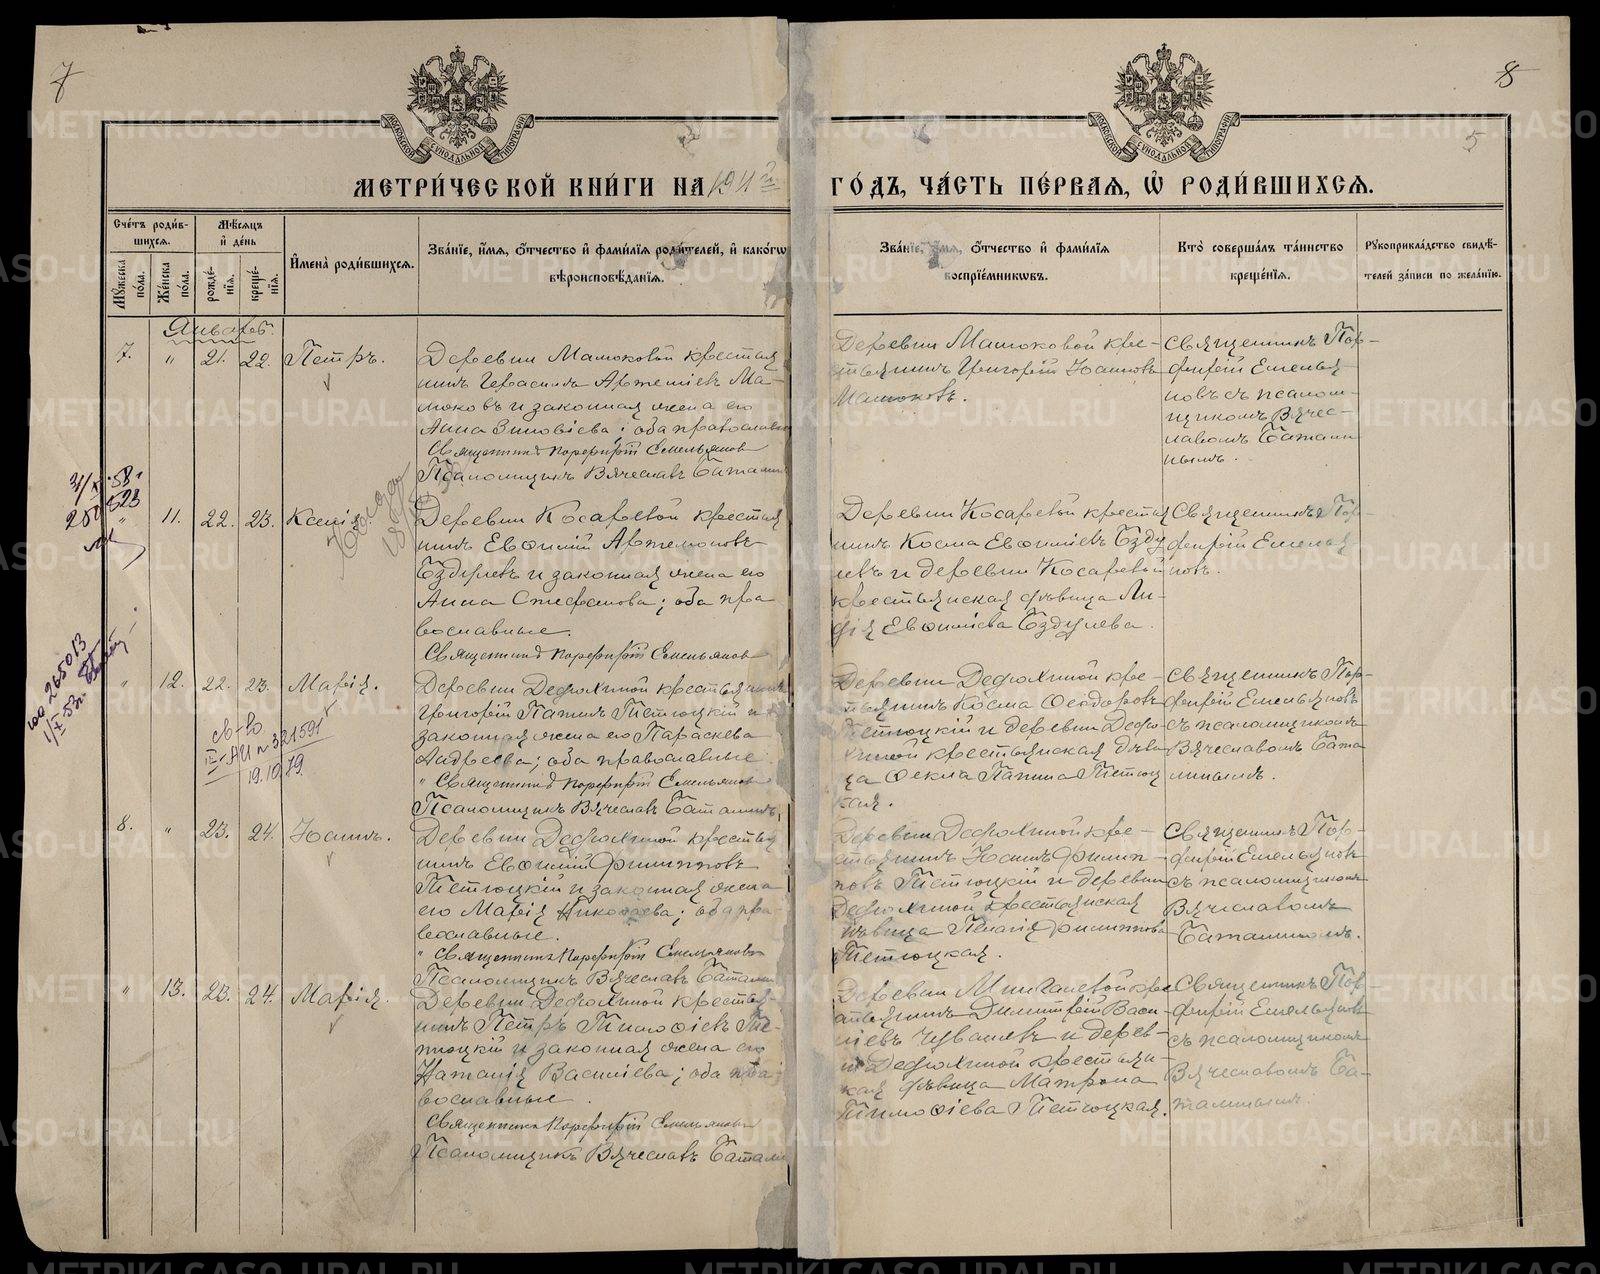 7
8
5
МОСКОВСКОЙ СѴНОДАЛЬНОЙ ТИПОГРАФІИ
МОСКОВСКОЙ СѴНОДАЛЬНОЙ ТИПОГРАФІИ
МЕТРИ́ЧЕСКОЙ КНИ́ГИ НА 1911й
ГО́ДЪ, ЧА́СТЬ ПЕ́РВАЯ, Ѽ РОДИ́ВШИХСЯ.
Сче́тъ роди́в-
шихся.
Мꙋ́жеска по́ла.
Же́нска по́ла.
Мѣ́сяцъ
и҆ де́нь
рожде́-
нїѧ.
креще́-
нїѧ.
И҆мена̀ роди́вшихся.
Зва́нїе, и҆́мѧ, ѻ҆́тчество и҆ фами́лїѧ роди́телей, и҆ како́гѡ
вѣроисповѣ́данїѧ.
Зва́нїе, и҆́мѧ, ѻ҆́тчество и҆ фами́лїѧ
воспрїе́мниковъ.
Кто̀ соверша́лъ та́инство
креще́нїѧ.
Рꙋкоприкла́дство свидѣ́-
телей за́писи по жела́нїю.
Январь.
7. " 21. 22. Петръ.
Деревни Матюковой крестья
нинъ Герасимъ Артемiевъ Ма-
тюковъ и законная жена его
Анна Зиновiева; оба православн
Священникъ Порфирiй Емельяновъ
Псаломщикъ Вячеславъ Баталин
Деревни Матюковой кре-
стьянинъ Григорiй Iоанновъ
Матюковъ.
Священникъ Пор-
фирiй Емелья
новъ съ псалом-
щикомъ Вячес-
лавомъ Баталин
нымъ.
" 11. 22. 23. Ксенiя.
Деревни Косаревой крестья
нинъ Евѳимiй Артемоновъ
Бздулевъ и законная жена его
Анна Стефанова; оба пра
вославные.
Священникъ Порфирiй Емельяновъ
Деревни Косаревой крестья
нинъ Косма Евѳимiевъ Бзду
левъ и деревни Косаревой
крестьянская дѣвица Ли-
дiя Евѳимiева Бздулева.
Священникъ Пор-
фирiй Емелья
новъ.
" 12. 22. 23. Марiя.
Деревни Дедюхиной крестьянинъ
Григорiй Папинъ Петюцкiй и
законная жена его Параскева
Андреева; оба православные
" Священникъ Порфирiй Емельяновъ
Псаломщикъ Вячеславъ Баталинъ
Деревни Дедюхиной кре-
стьянинъ Косма Ѳеодоровъ
Петюцкiй и деревни Дедю-
хиной крестьянская дѣви
ца Ѳекла Папина Петюц
кая.
Священникъ Пор-
фирiй Емельяновъ
съ псаломщикомъ
Вячеславомъ Бата
линымъ.
св-во
IІІ-АИ № 321591
19.10.79
8. " 23. 24. Iоаннъ.
Деревни Дедюхиной крестья
нинъ Евѳимiй Филипповъ
Петюцкiй и законная жена
его Марiя Николаева; оба пра-
вославные.
" Священникъ Порфирiй Емельяновъ
Псаломщикъ Вячеславъ Баталин
Деревни Дедюхиной кре-
стьянинъ Iоаннъ Филип-
повъ Петюцкiй и деревни
Дедюхиной крестьянская
дѣвица Пелагiя Филиппова
Петюцкая.
Священникъ Пор-
фирiй Емельяновъ
съ псаломщикомъ
Вячеславомъ
Баталинымъ.
" 13. 23. 24. Марiя.
Деревни Дедюхиной крестья-
нинъ Петръ Тимоѳiевъ Пе-
тюцкiй и законная жена его
Наталiя Василiева; оба пра-
вославные.
Священникъ Порфирiй Емельяновъ
Псаломщикъ Вячеславъ Батали
Деревни Мингалевой кре
стьянинъ Димитрiй Васи-
лiевъ Чувашевъ и дерев-
ни Дедюхиной крестьян-
ская дѣвица Матрона
Тимоѳiева Петюцкая.
Священникъ Пор-
фирiй Емельяновъ
съ псаломщикомъ
Вячеславомъ Ба-
талинымъ.
METRIKI.GASO-URAL.RU